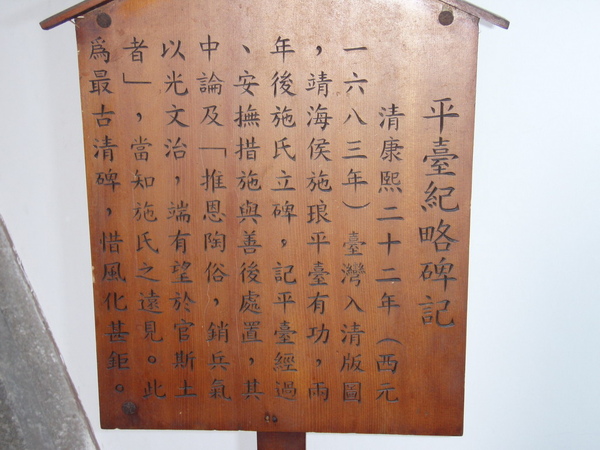 平臺紀略碑記
清康熙二十二年（西元
一六八三年）臺灣入清版圖
，靖海侯施琅平臺有功，兩
年後施氏立碑，記平臺經過
、安撫措施與善後處置，其
中論及「推恩陶俗，銷兵氣
以光文治，端有望於官斯土
者」，當知施氏之遠見。此
為最古清碑，惜風化甚鉅。